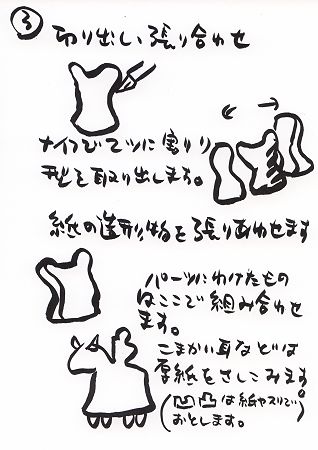 ③ 取り出し、張り合わせ
ナイフで二ツに割り
型を取り出します。
紙の造形物を張りあわせます
パーツにわけたもの
はここで組み合わせ
ます。
こまかい耳などは
厚紙をさしこみます。
(凹凸は紙ヤスリで
おとします。)